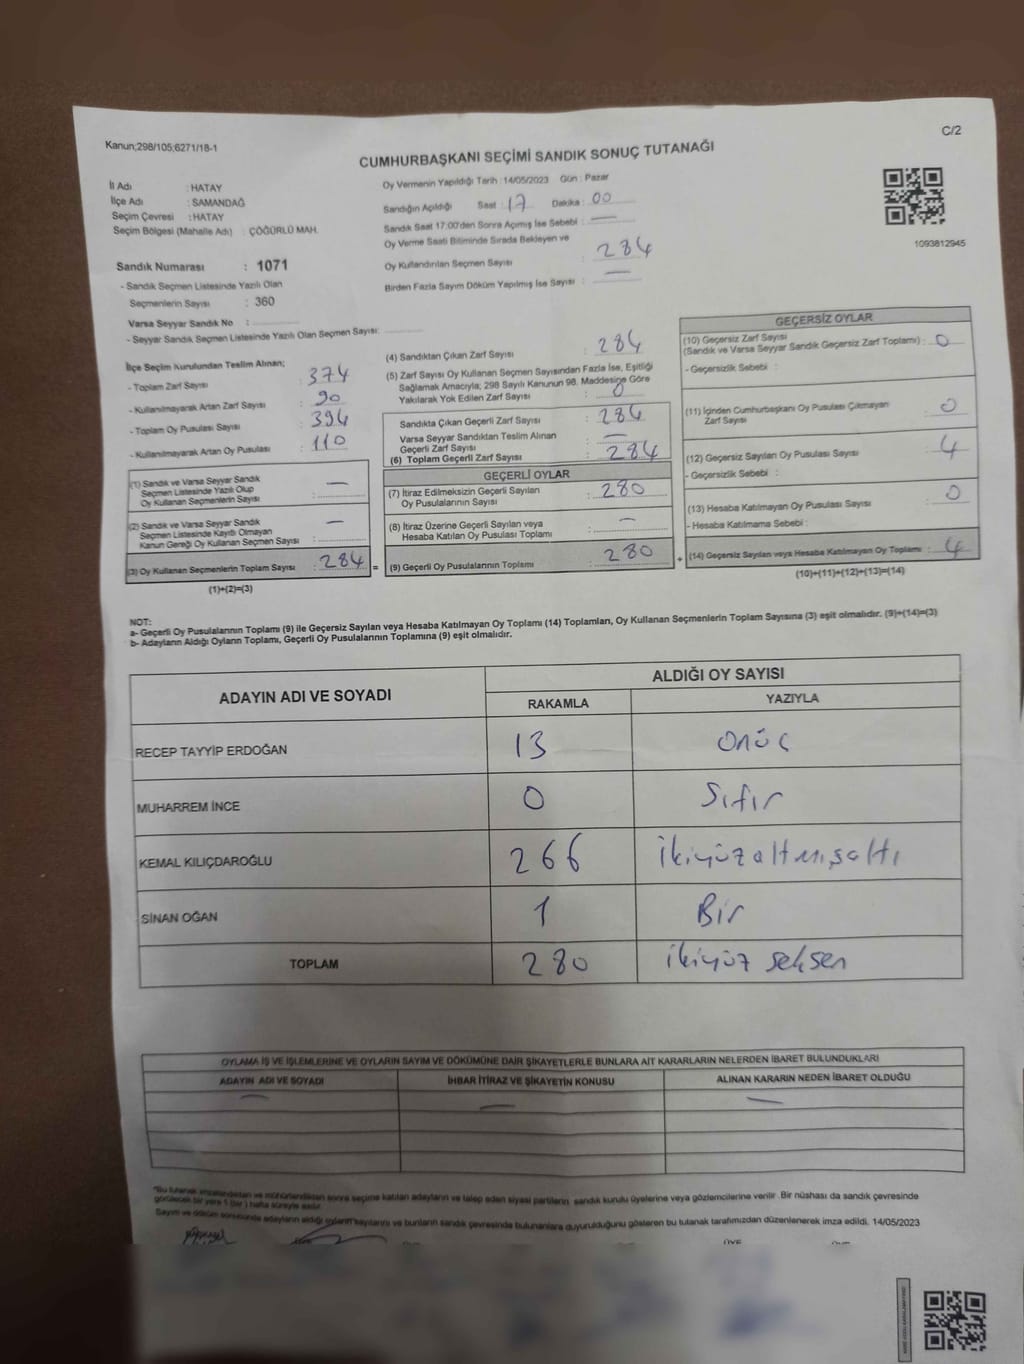 Kanun;298/105;6271/18-1
C/2
CUMHURBAŞKANI SEÇİMİ SANDIK SONUÇ TUTANAĞI
İl Adı : HATAY
İlçe Adı : SAMANDAĞ
Seçim Çevresi : HATAY
Seçim Bölgesi (Mahalle Adı) : ÇÖĞÜRLÜ MAH.
Sandık Numarası : 1071
- Sandık Seçmen Listesinde Yazılı Olan
Seçmenlerin Sayısı : 360
Varsa Seyyar Sandık No :
- Seyyar Sandık Seçmen Listesinde Yazılı Olan Seçmen Sayısı:
Oy Vermenin Yapıldığı Tarih : 14/05/2023 Gün : Pazar
Sandığın Açıldığı Saat : 17 Dakika : 00
Sandık Saat 17:00'den Sonra Açımış İse Sebebi : —
Oy Verme Saati Bitiminde Sırada Bekleyen ve
Oy Kullandırılan Seçmen Sayısı : 284
Birden Fazla Sayım Döküm Yapılmış İse Sayısı : —
1093812945
İlçe Seçim Kurulundan Teslim Alınan;
- Toplam Zarf Sayısı : 374
- Kullanılmayarak Artan Zarf Sayısı : 90
- Toplam Oy Pusulası Sayısı : 394
- Kullanılmayarak Artan Oy Pusulası : 110
(1) Sandık ve Varsa Seyyar Sandık
Seçmen Listesinde Yazılı Olup
Oy Kullanan Seçmenlerin Sayısı : —
(2) Sandık ve Varsa Seyyar Sandık
Seçmen Listesinde Kayıtlı Olmayan
Kanun Gereği Oy Kullanan Seçmen Sayısı : —
(3) Oy Kullanan Seçmenlerin Toplam Sayısı : 284 =
(1)+(2)=(3)
(4) Sandıktan Çıkan Zarf Sayısı : 284
(5) Zarf Sayısı Oy Kullanan Seçmen Sayısından Fazla İse, Eşitliği
Sağlamak Amacıyla; 298 Sayılı Kanunun 98. Maddesine Göre
Yakılarak Yok Edilen Zarf Sayısı : 0
Sandıkta Çıkan Geçerli Zarf Sayısı : 284
Varsa Seyyar Sandıktan Teslim Alınan
Geçerli Zarf Sayısı : —
(6) Toplam Geçerli Zarf Sayısı : 284
GEÇERLİ OYLAR
(7) İtiraz Edilmeksizin Geçerli Sayılan
Oy Pusulalarının Sayısı : 280
(8) İtiraz Üzerine Geçerli Sayılan veya
Hesaba Katılan Oy Pusulası Toplamı : —
(9) Geçerli Oy Pusulalarının Toplamı : 280 +
GEÇERSİZ OYLAR
(10) Geçersiz Zarf Sayısı
(Sandık ve Varsa Seyyar Sandık Geçersiz Zarf Toplamı) : 0
- Geçersizlik Sebebi :
(11) İçinden Cumhurbaşkanı Oy Pusulası Çıkmayan
Zarf Sayısı : 0
(12) Geçersiz Sayılan Oy Pusulası Sayısı : 4
- Geçersizlik Sebebi :
(13) Hesaba Katılmayan Oy Pusulası Sayısı : 0
- Hesaba Katılmama Sebebi :
(14) Geçersiz Sayılan veya Hesaba Katılmayan Oy Toplamı : 4
(10)+(11)+(12)+(13)=(14)
NOT:
a- Geçerli Oy Pusulalarının Toplamı (9) ile Geçersiz Sayılan veya Hesaba Katılmayan Oy Toplamı (14) Toplamları, Oy Kullanan Seçmenlerin Toplam Sayısına (3) eşit olmalıdır. (9)+(14)=(3)
b- Adayların Aldığı Oyların Toplamı, Geçerli Oy Pusulalarının Toplamına (9) eşit olmalıdır.
ADAYIN ADI VE SOYADI ALDIĞI OY SAYISI
RAKAMLA YAZIYLA
RECEP TAYYİP ERDOĞAN 13 onüç
MUHARREM İNCE 0 Sıfır
KEMAL KILIÇDAROĞLU 266 ikiyüzaltmışaltı
SİNAN OĞAN 1 Bir
TOPLAM 280 ikiyüz seksen
OYLAMA İŞ VE İŞLEMLERİNE VE OYLARIN SAYIM VE DÖKÜMÜNE DAİR ŞİKAYETLERLE BUNLARA AİT KARARLARIN NELERDEN İBARET BULUNDUKLARI
ADAYIN ADI VE SOYADI İHBAR İTİRAZ VE ŞİKAYETİN KONUSU ALINAN KARARIN NEDEN İBARET OLDUĞU
— — —
"Bu tutanak imzalandıktan ve mühürlendikten sonra seçime katılan adayların ve talep eden siyasi partilerin sandık kurulu üyelerine veya gözlemcilerine verilir. Bir nüshası da sandık çevresinde
görülecek bir yere 1 (bir) hafta süreyle asılır.
Sayım ve döküm sonucunda adayların aldığı oyların sayılarını ve bunların sandık çevresinde bulunanlara duyurulduğunu gösteren bu tutanak tarafımızdan düzenlenerek imza edildi. 14/05/2023
ÜYE